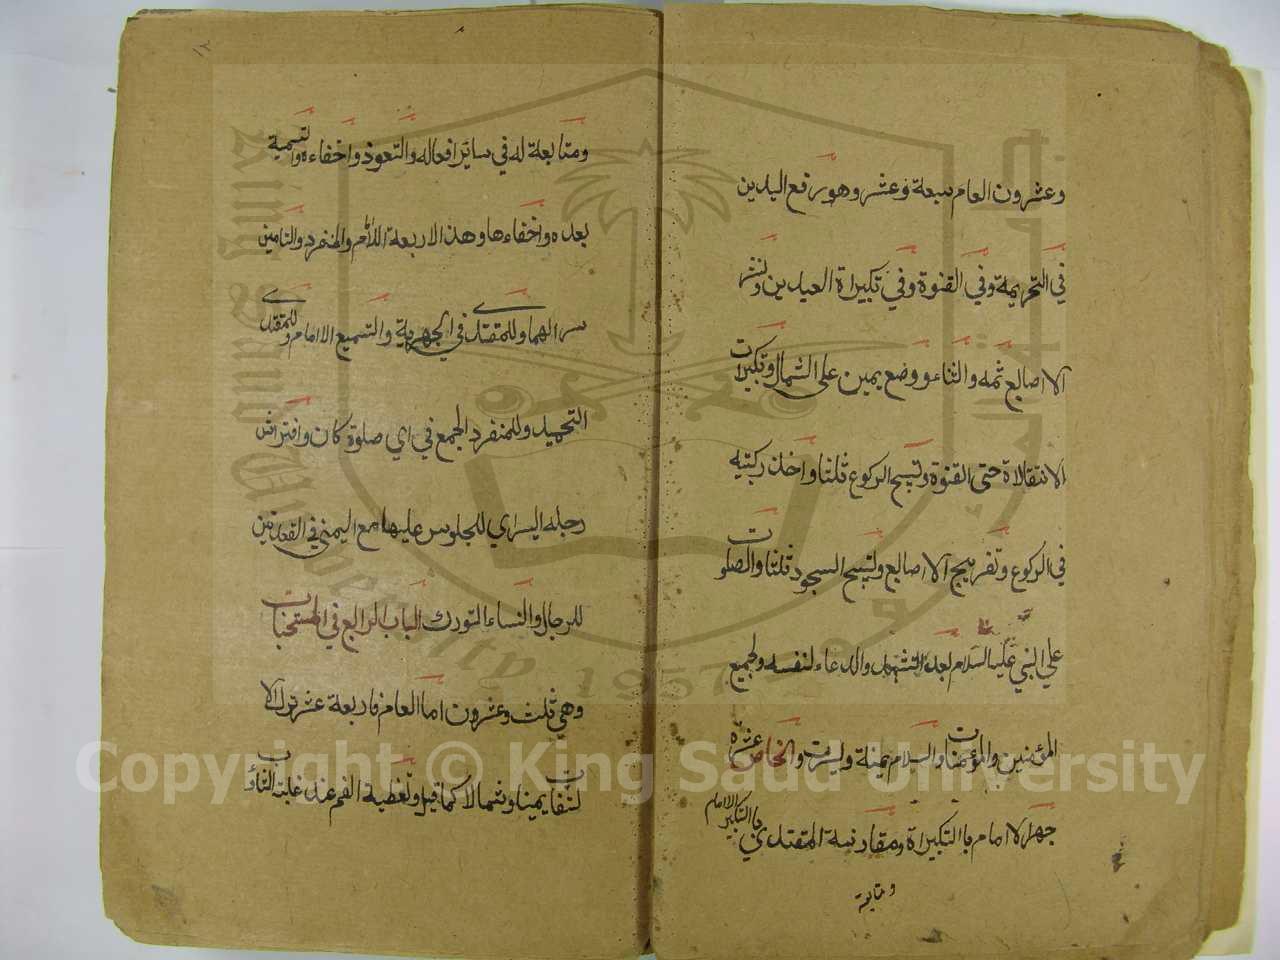 وعشرون العام سبعة وعشر وهو رفع اليدين
في التحريمة وفي القنوة وفي تكبيراة العيدين ونشر
الاصابع ثمه والثناء ووضع يمين على الشمال وتكبيرات
الانتقالاة حتى القنوة وتسبيح الركوع ثلثا واخذ ركبتيه
في الركوع وتفريج الاصابع وتسبيح السجود ثلثا والصلوت
علي النبي عليه السلام بعد التشهد والدعاء لنفسه ولجميع
المؤمنين والمؤمنات والسلام يمينة ويسرت والخاص عشرة
جهر الامام باالتكبيراة ومقارنة المقتدي باالتكبير الامام
ومتابعة
١٢
ومتابعة له في سائر افعاله والتعوذ واخفاءه والتسمية
بعده واخفاءها وهذه الاربعة للامام والمنفرد والتامين
سرا لهما وللمقتدي في الجهرية والتسميع الاامام وللمقتدي
التحميد وللمنفرد الجمع في اي صلوة كان وافتراش
رجله اليسراي للجلوس عليها مع اليمنى في القعدتين
للرجال والنساء التورك الباب الرابع في المستحبات
وهي ثلث وعشرون اما العام فاربعة عشر ترك الا
لتفات يمينا وشمالا كما قيل وتغطية الفم عند غلبة التثاؤب
Copyright © King Saud University
King Saud University
1957